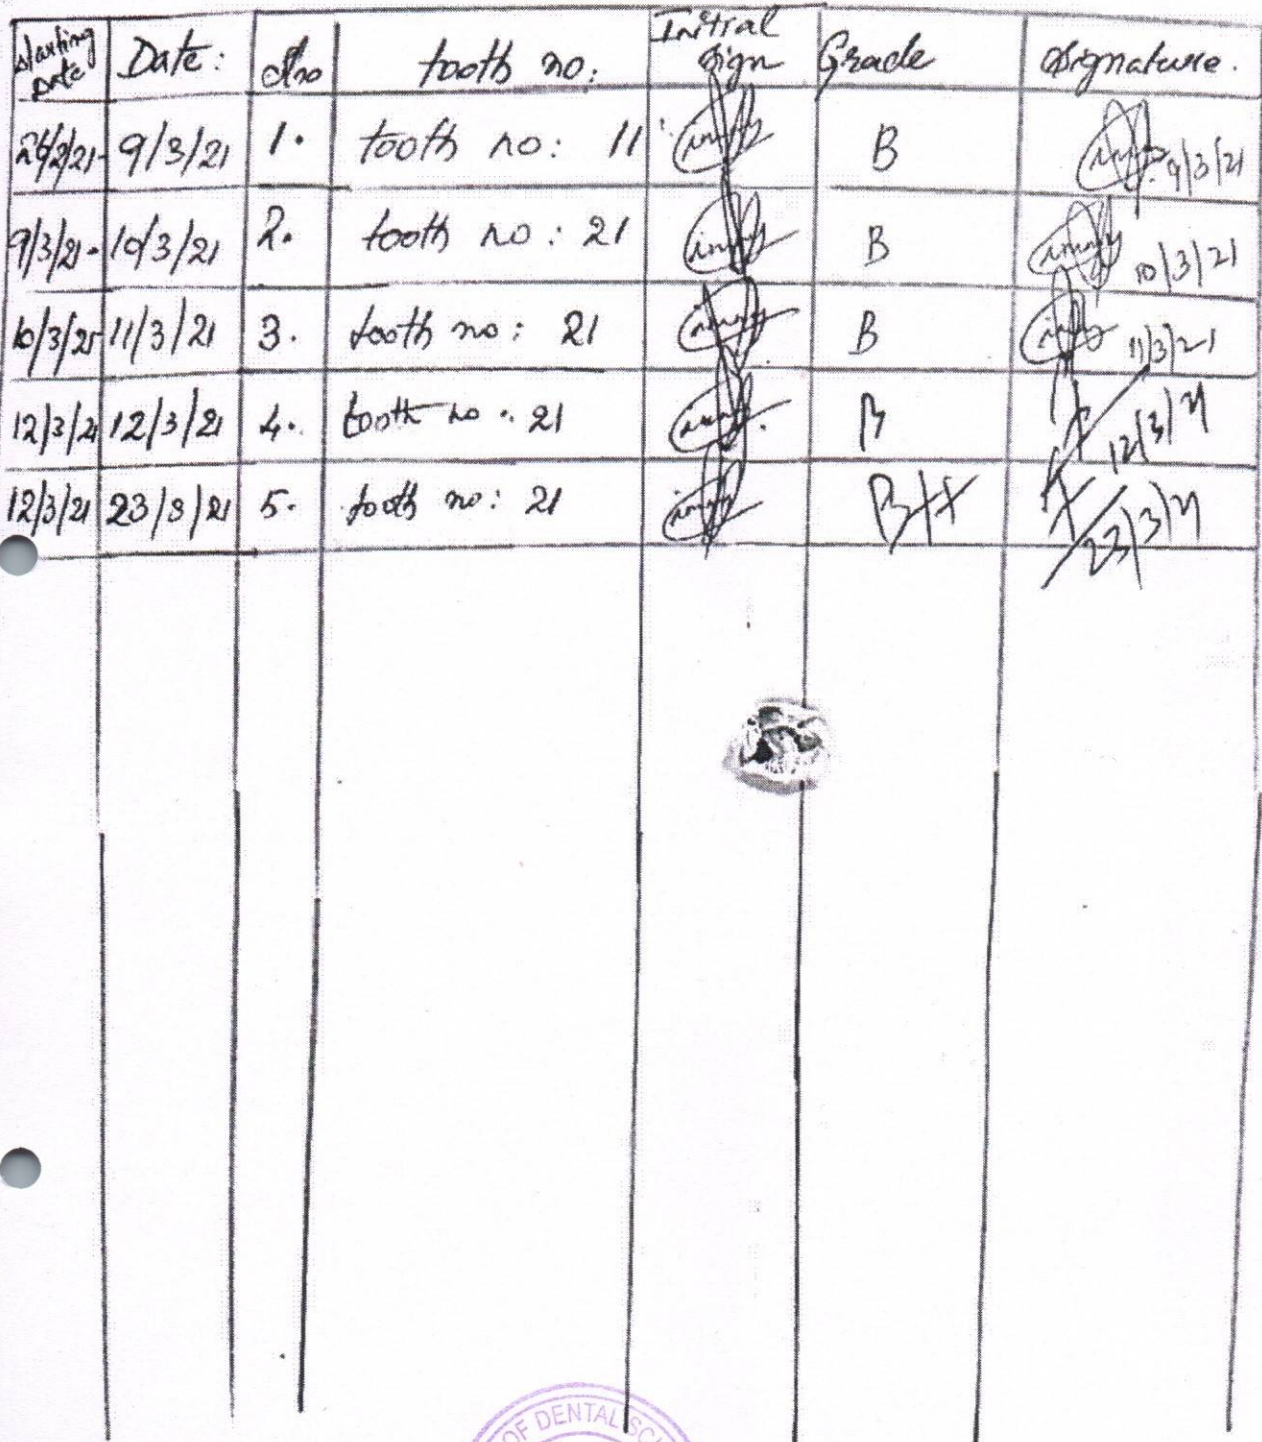 Starting Date Date: S.no tooth no: Initial Sign Grade Signature.
26/2/21- 9/3/21 1. tooth no: 11 B 9/3/21
9/3/21- 10/3/21 2. tooth no: 21 B 10/3/21
10/3/21 11/3/21 3. tooth no: 21 B 11/3/21
12/3/21 12/3/21 4. tooth no. 21 B 12/3/21
12/3/21 23/3/21 5. tooth no: 21 B++ 23/3/21
OF DENTAL